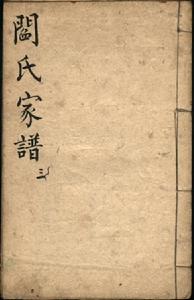 閻氏家譜
三